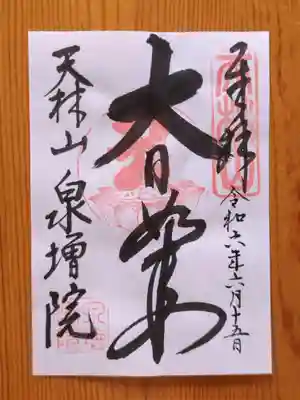 奉拝
令和六年六月十五日
大日如来
天林山泉増院